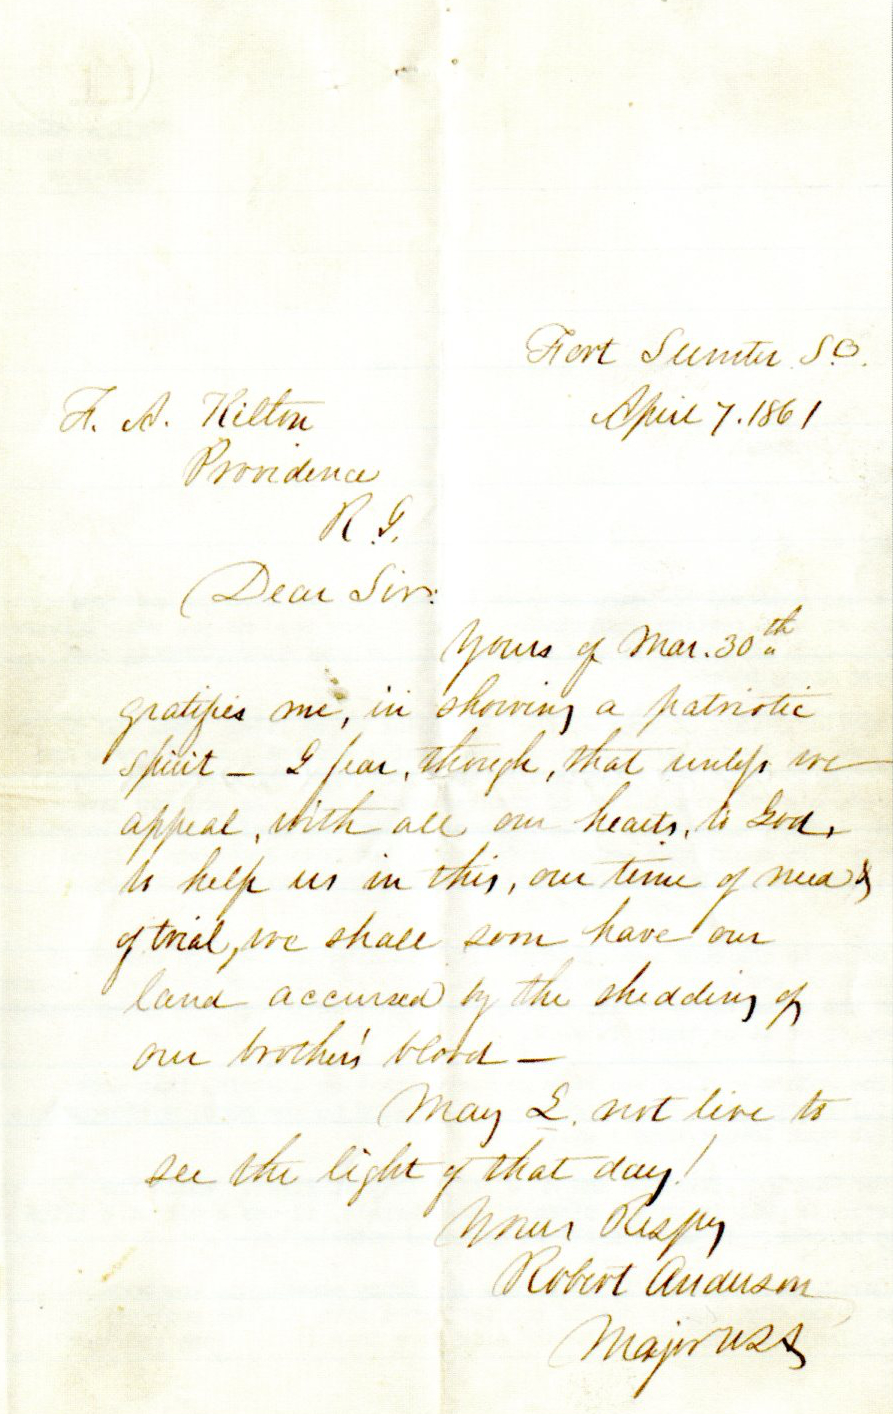 Fort Sumter S.C.
April 7. 1861
F. A. Hilton
Providence
R. I.
Dear Sir:
Yours of Mar. 30th
gratifies me, in showing a patriotic
spirit — I fear, though, that unless we
appeal, with all our hearts, to God,
to help us in this, our time of need &
of trial, we shall soon have our
land accursed by the shedding of
our brother's blood —
May I not live to
see the light of that day!
Your Respy
Robert Anderson
Major USA